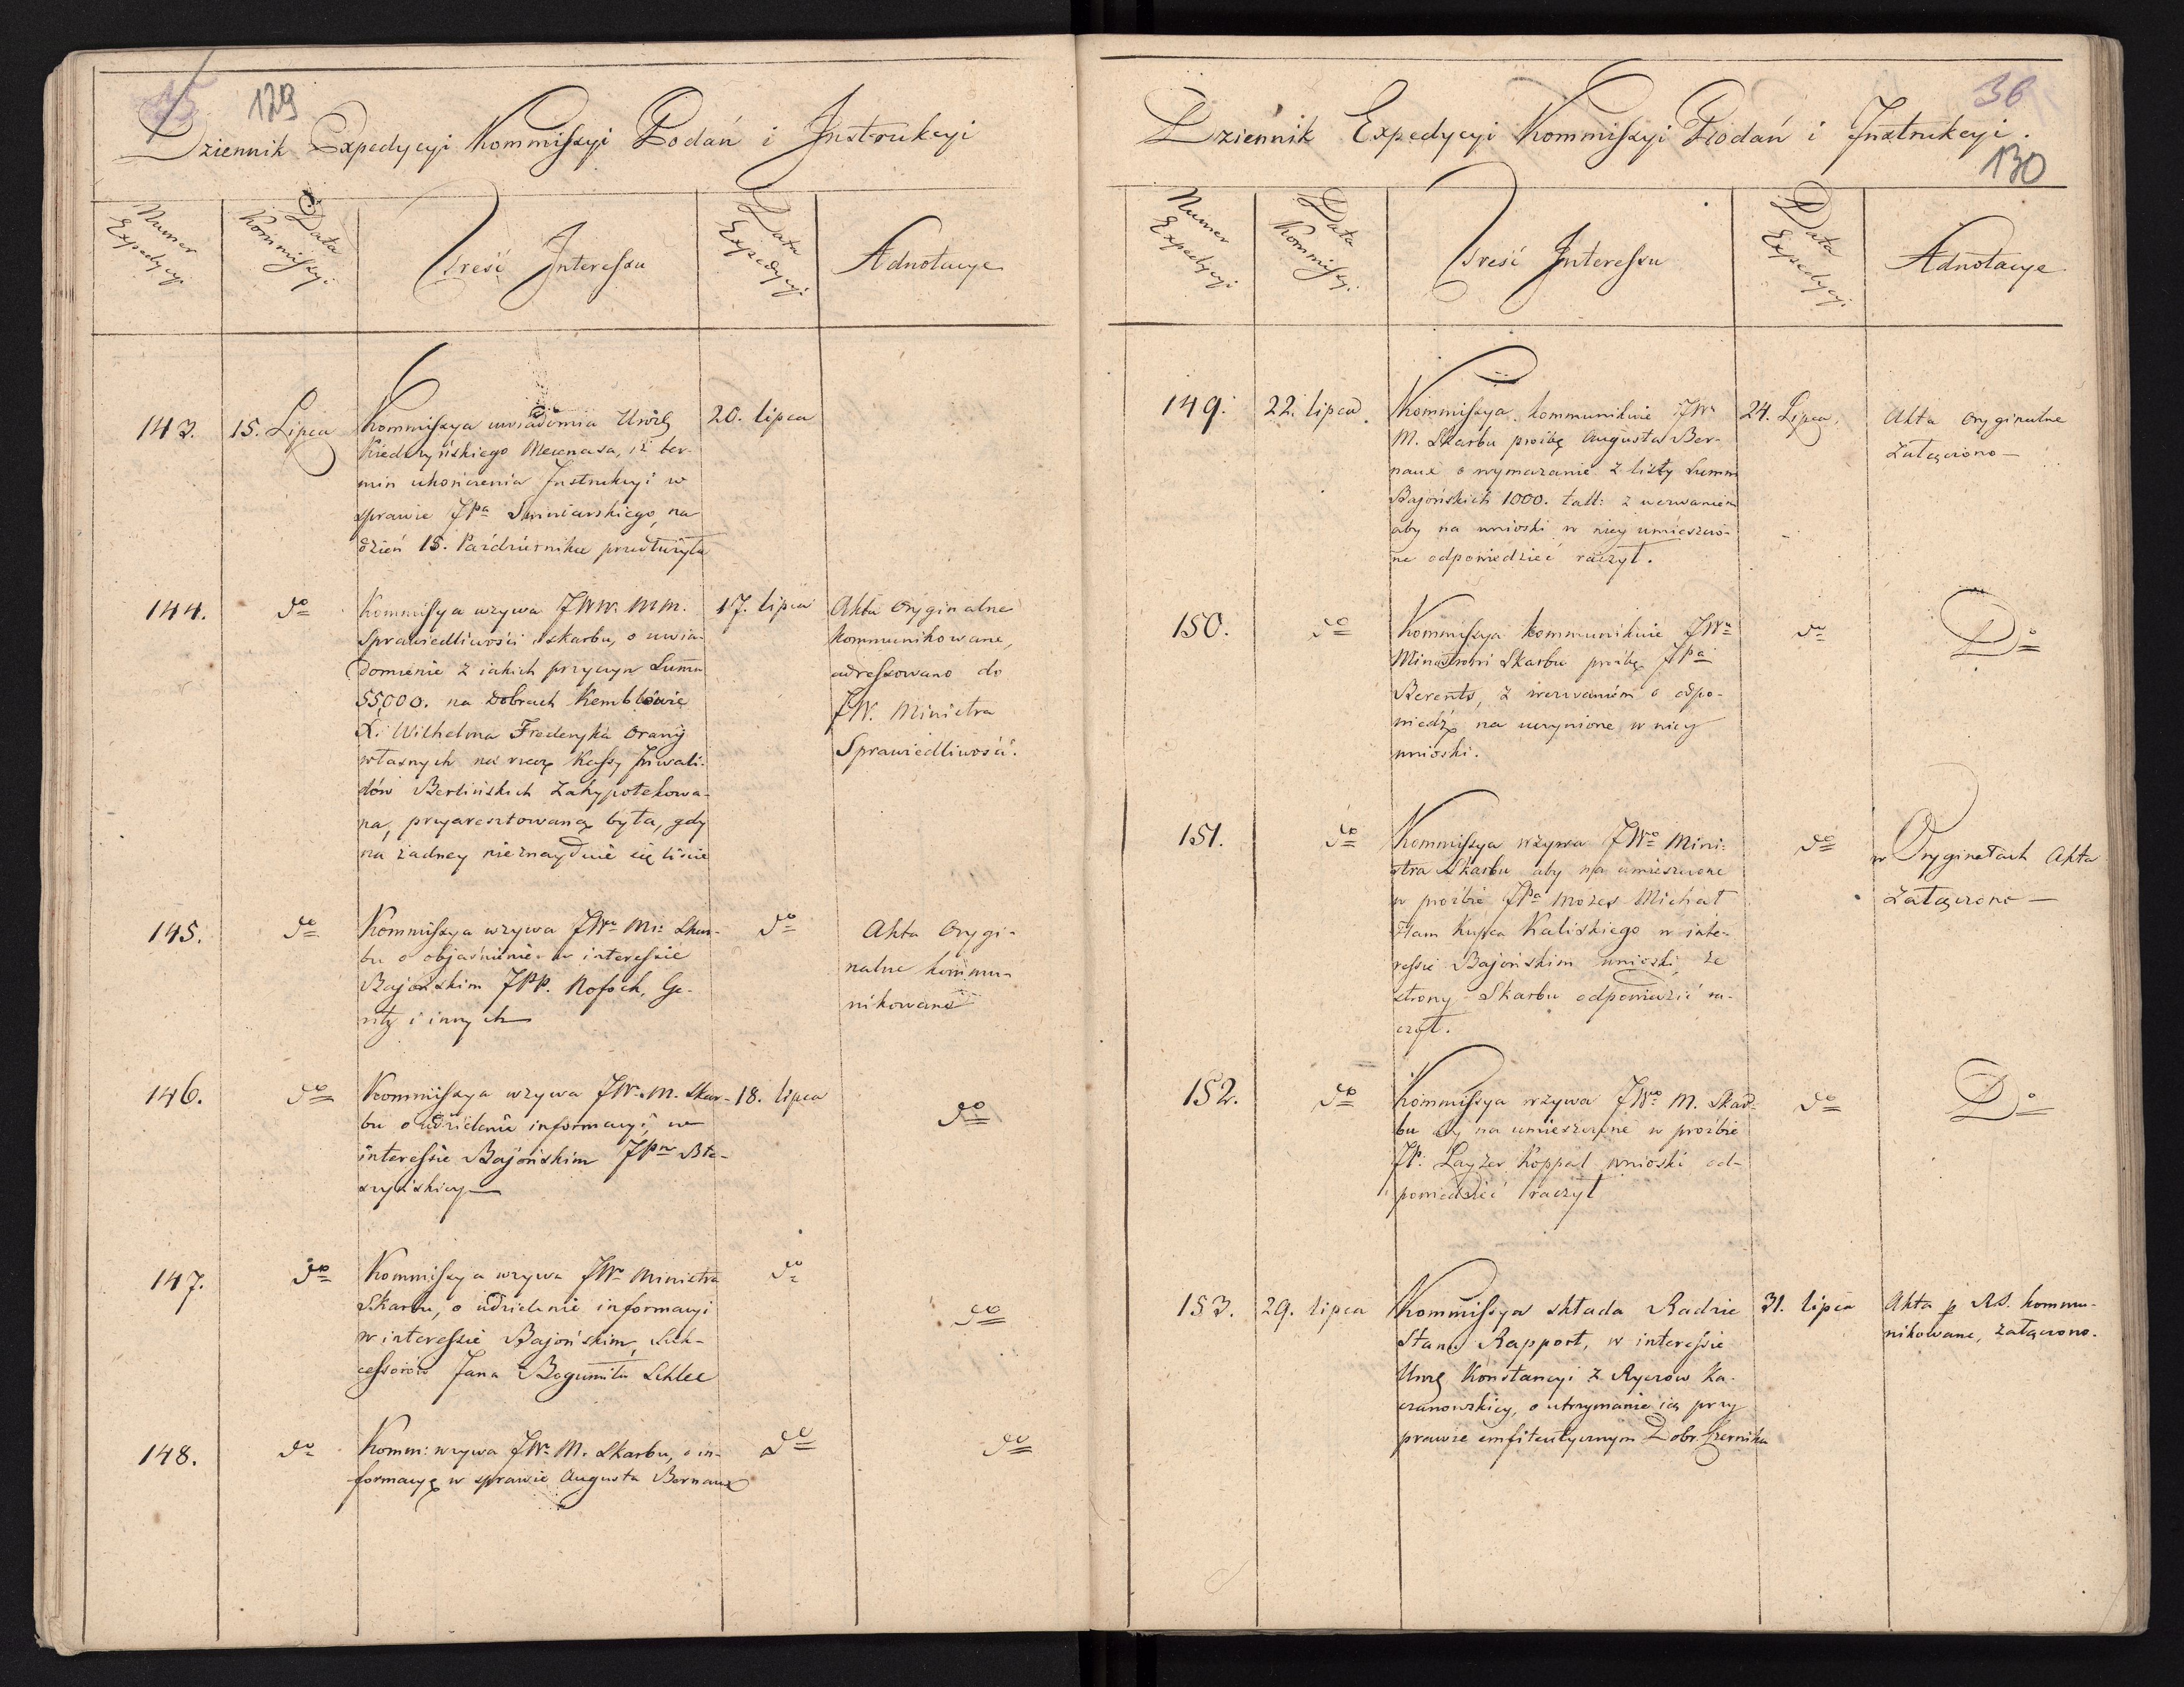 129
Dziennik Expedycyi Kommissyi Podań i Instrukcyi
Numer Expedycyi
Data Kommissyi.
Treść Interessu
Data Expedycyi
Adnotacye
143.
15. Lipca
Kommissya uwiadomia Urożę
Kiedrzyńskiego Mecenasa, iż ter-
min ukończenia Instrukcyi w
sprawie JPa Swiniarskiego, na
dzień 15. Października przedłużyła
20. lipca
144.
do
Kommissya wzywa JWW. MM.
Sprawiedliwości i skarbu, o uwia-
domienie z iakich przyczyn Summa
55,000. na Dobrach Kemblowie
X. Wilhelma Fryderyka Oranij
własnych na rzecz Kassy Inwali-
dów Berlińskich zahypotekowa-
na, przyaresztowaną była, gdy
na żadney nieznayduie się liście
17. lipca
Akta Oryginalne
kommunikowane,
adressowano do
JW. Ministra
Sprawiedliwości.
145.
do
Kommissya wzywa JWo Mi: Skar-
bu o objaśnienie w interessie
Bajońskim JPP. Nofoch, Ge-
ritz i innych
do
Akta Orygi-
nalne kommu-
nikowane
146.
do
Kommissya wzywa JWo M. Skar-
bu o udzielenie informacyi, w
interessie Bajońskim JPny Błe-
szyńskiey
18. lipca
do
147.
do
Kommissya wzywa JWo Ministra
Skarbu, o udzielenie informacyi
w interessie Bajońskim, Suk-
cessorów Jana Bogumiła Schlee
do
do
148.
do
Komm: wzywa JWo M. Skarbu, o in-
formacyę w sprawie Augusta Bernaux
do
do
36
Dziennik Expedycyi Kommissyi Podań i Instrukcyi.
130
Numer Expedycyi
Data Kommissyi.
Treść Interessu
Data Expedycyi.
Adnotacye
149.
22. lipca
Kommissya kommunikuie JWu
M. Skarbu proźbę Augusta Ber-
naux o wymazanie z listy Summ
Bajońskich 1000. tall: z wezwaniem
aby na wnioski w niey umieszczo-
ne odpowiedzieć raczył.
24. Lipca.
Akta Oryginalne
załączono —
150.
do
Kommissya kommunikuie JWu
Ministrowi Skarbu proźbę JPa
Berents, z wezwaniem o odpo-
wiedź na uczynione w niey
wnioski.
do
Do
151.
do
Kommissya wzywa JWo Mini-
stra Skarbu aby na umieszczone
w proźbie JPa Mozes Michał
Ham Kupca Kaliskiego w inte-
ressie Bajońskim wnioski, ze
strony Skarbu odpowiedzić ra-
czył.
do
w Oryginałach Akta
załączono —
152.
do
Kommissya wzywa JWo M. Skar-
bu by na umieszczone w proźbie
JP. Layzer Koppal wnioski od-
powiedzieć raczył
do
Do
153.
29. lipca
Kommissya składa Radzie
Stanu Rapport, w interessie
Urożę Konstancyi z Ryczów Ka-
czanowskiey, o utrzymanie ią przy
prawie emfiteutycznym Dobr Czernika
31. lipca
Akta p RS. kommu-
nikowane, załączono.